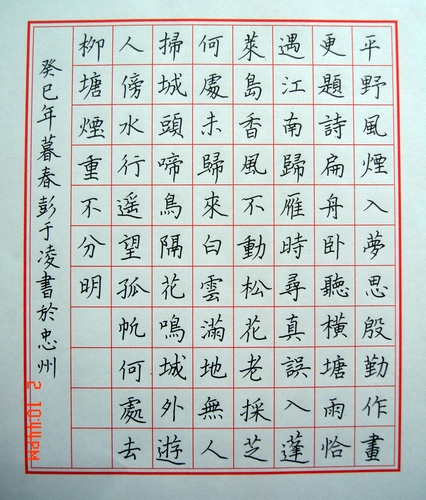 平野風煙入夢思殷勤作畫
更題詩扁舟卧聽橫塘雨恰
遇江南歸雁時尋真誤入蓬
萊島香風不動松花老採芝
何處未歸來白雲滿地無人
掃城頭啼鳥隔花鳴城外遊
人傍水行遙望孤帆何處去
柳塘煙重不分明
癸巳年暮春彭于凌書於忠州